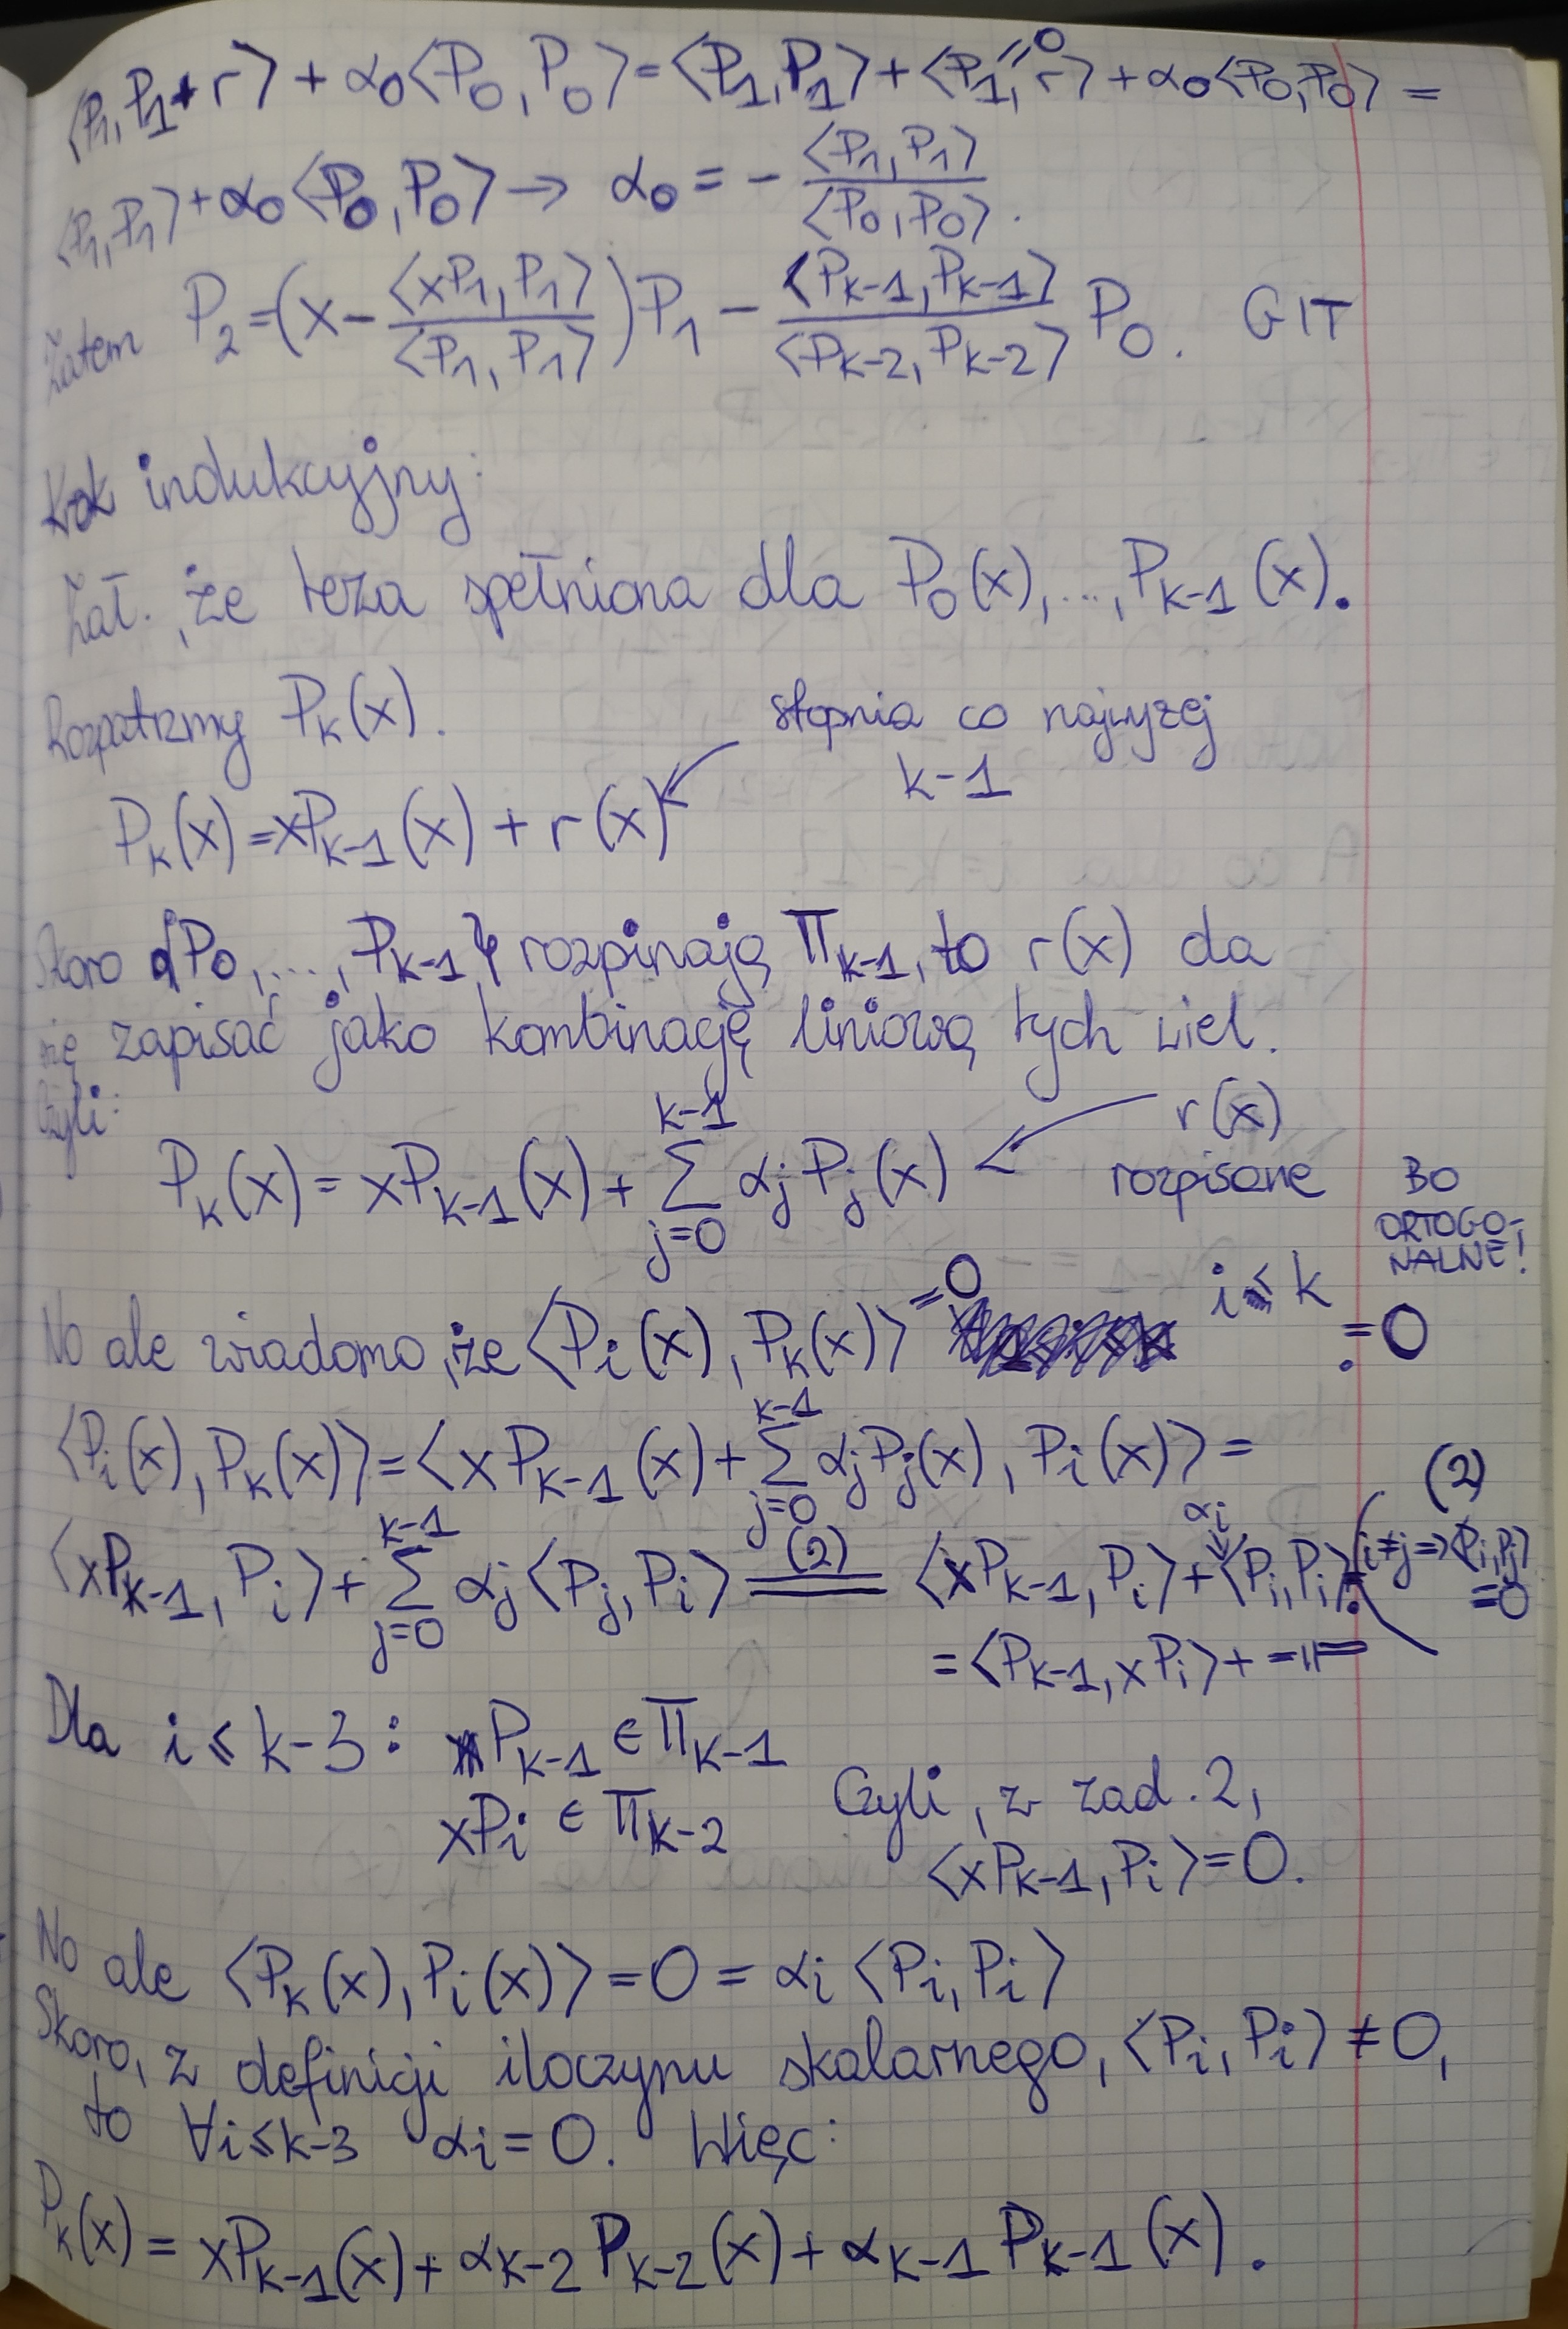 ⟨P₁, P₁+r⟩ + α₀⟨P₀, P₀⟩ = ⟨P₁, P₁⟩ + ⟨P₁, r⟩ + α₀⟨P₀, P₀⟩ =
=0
⟨P₁, P₁⟩ + α₀⟨P₀, P₀⟩ → α₀ = - ⟨P₁, P₁⟩ / ⟨P₀, P₀⟩.
Zatem P₂ = (x - ⟨xP₁, P₁⟩ / ⟨P₁, P₁⟩) P₁ - ⟨Pₖ₋₁, Pₖ₋₁⟩ / ⟨Pₖ₋₂, Pₖ₋₂⟩ P₀. GIT
Krok indukcyjny:
Zał., że teza spełniona dla P₀(x), ..., Pₖ₋₁(x).
Rozpatrzmy Pₖ(x).
stopnia co najwyzej
k-1
Pₖ(x) = xPₖ₋₁(x) + r(x)
Skoro {P₀, ..., Pₖ₋₁} rozpinają Πₖ₋₁, to r(x) da
się zapisać jako kombinację liniową tych wiel.
Czyli:
Pₖ(x) = xPₖ₋₁(x) + ∑_{j=0}^{k-1} αⱼPⱼ(x) ← r(x)
rozpisane
BO
ORTOGO-
NALNE!
No ale wiadomo, że ⟨Pᵢ(x), Pₖ(x)⟩ = 0 i ≤ k
. = 0
⟨Pᵢ(x), Pₖ(x)⟩ = ⟨xPₖ₋₁(x) + ∑_{j=0}^{k-1} αⱼPⱼ(x), Pᵢ(x)⟩ =
⟨xPₖ₋₁, Pᵢ⟩ + ∑_{j=0}^{k-1} αⱼ⟨Pⱼ, Pᵢ⟩ =(2)= ⟨xPₖ₋₁, Pᵢ⟩ + αᵢ⟨Pᵢ, Pᵢ⟩
(2)
i≠j ⇒ ⟨Pᵢ, Pⱼ⟩
=0
= ⟨Pₖ₋₁, xPᵢ⟩ + -11-
Dla i ≤ k-3: Pₖ₋₁ ∈ Πₖ₋₁
xPᵢ ∈ Πₖ₋₂
Czyli, z zad. 2,
⟨xPₖ₋₁, Pᵢ⟩ = 0.
No ale ⟨Pₖ(x), Pᵢ(x)⟩ = 0 = αᵢ⟨Pᵢ, Pᵢ⟩
Skoro, z definicji iloczynu skalarnego, ⟨Pᵢ, Pᵢ⟩ ≠ 0,
to ∀i≤k-3 αᵢ = 0. Więc:
Pₖ(x) = xPₖ₋₁(x) + αₖ₋₂Pₖ₋₂(x) + αₖ₋₁Pₖ₋₁(x).